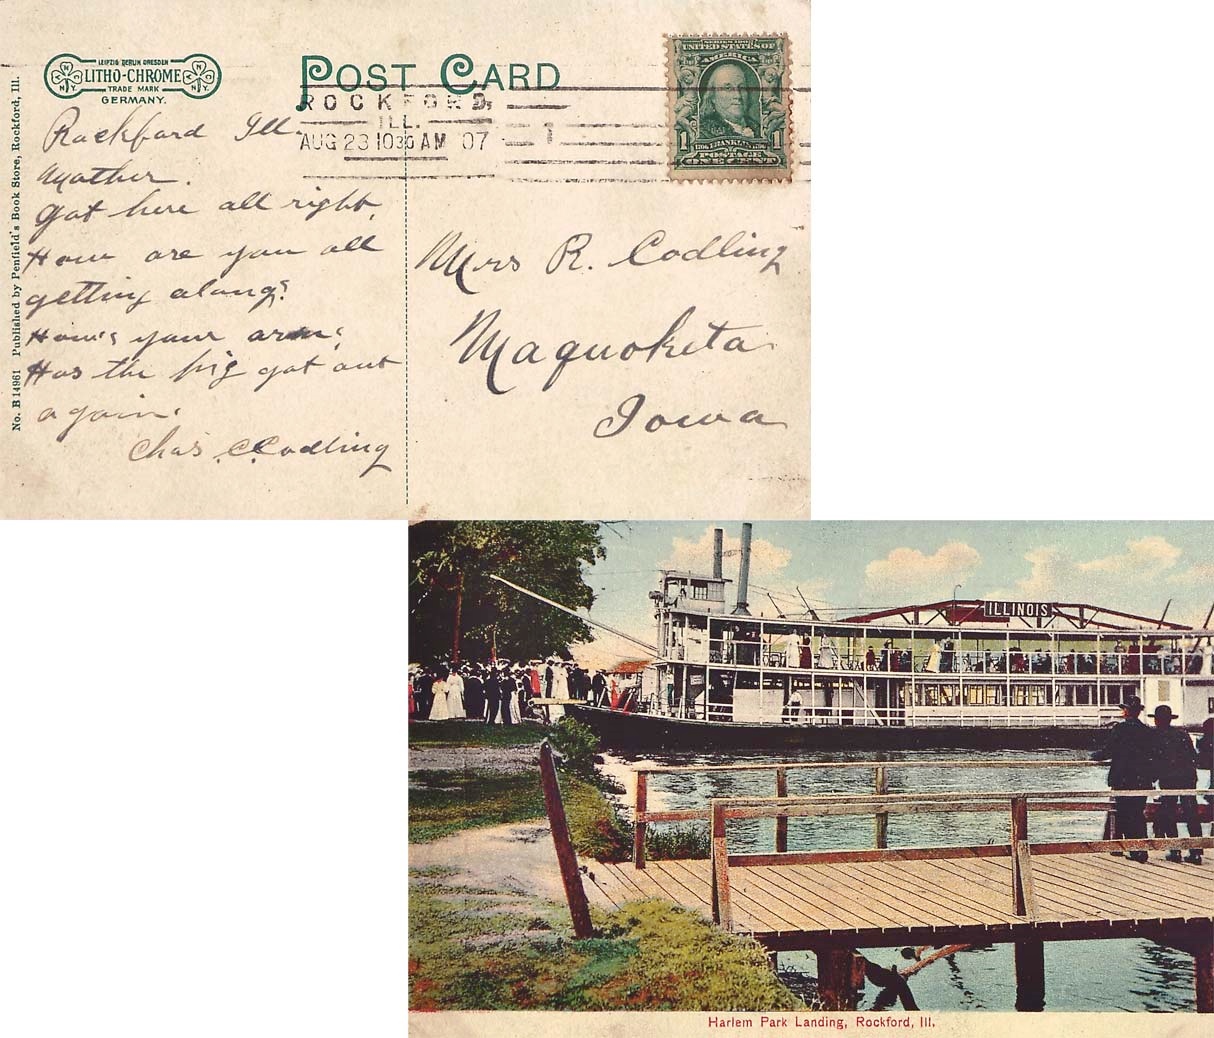 LEIPZIG BERLIN DRESDEN
LITHO-CHROME
TRADE MARK
GERMANY.
N Y
N Y
POST CARD
ROCKFORD,
ILL.
AUG 23 10 30 AM 07
1
SERIES 1902
UNITED STATES OF
AMERICA
1 1
1706 FRANKLIN 1790
POSTAGE
ONE CENT
No. B 14961 Published by Penfield's Book Store, Rockford, Ill.
Rockford Ill.
Mother.
Got here all right,
How are you all
getting along?
How's your arm?
Has the pig got out
again?
Chas. C. Codling
Mrs R. Codling
Maquoketa
Iowa
ILLINOIS
Harlem Park Landing, Rockford, Ill.